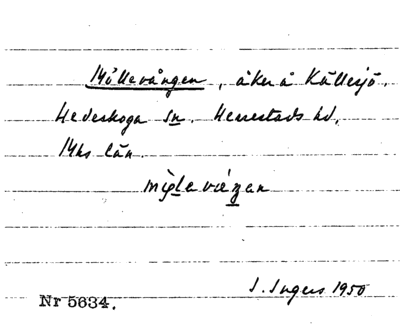 Möllevången, åker å Källesjö.
Hedeskoga sn. Herrestads hd.
Mhs län.
I. Ingers 1950
Nr 5634.